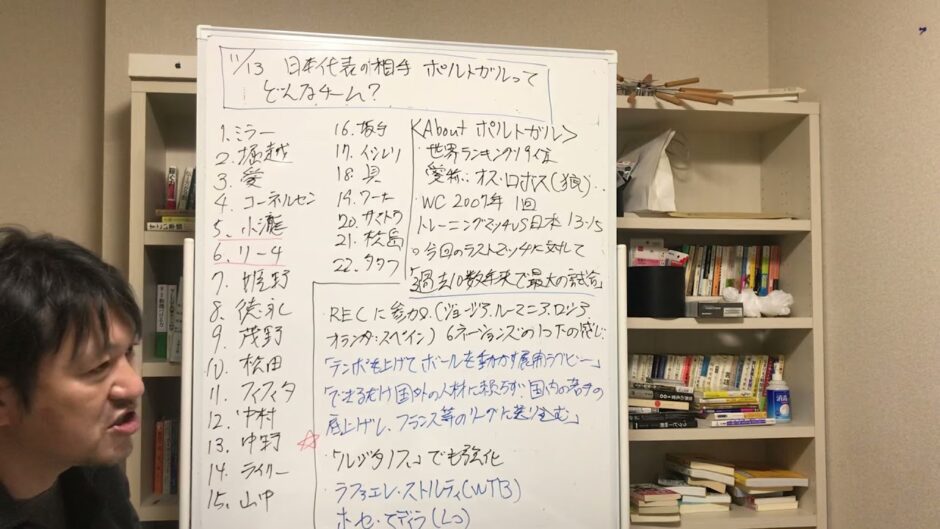 11/13 日本代表の相手 ポルトガルって
どんなチーム?
1. ミラー
2. 堀越
3. 愛
4 コーネルセン
5. 小瀧
6. リーチ
7 姫野
8. 徳永
9. 茂野
10. 松田
11. フィフィタ
12. 中村
13. 中野
14. ライリー
15. 山中
16. 坂手
17. イシレリ
18. 具
19. ワーナー
20. サイトウ
21. 松島
22. タタフ
<About ポルトガル>
・世界ランキング19位
愛称:オス・ロボス(狼)..
・WC 2007年 1回
トレーニングマッチVS日本 13-15
○今回のラストマッチに対して
「過去10数年来で最大の試合」
・RECに参加。(ジョージア.ルーマニア.ロシア.
オランダ.スペイン) 6ネーションズの1つ下の感じ.
「テンポを上げてボールを動かす展開ラグビー」
「できるだけ国外の人材に頼らず.国内の若手の
底上げし、フランス等のリーグに送り込む」
☆
・「ルシタノス」でも強化
ラファエレ・ストルティ(WTB)
ホセ・マディラ(Lo)